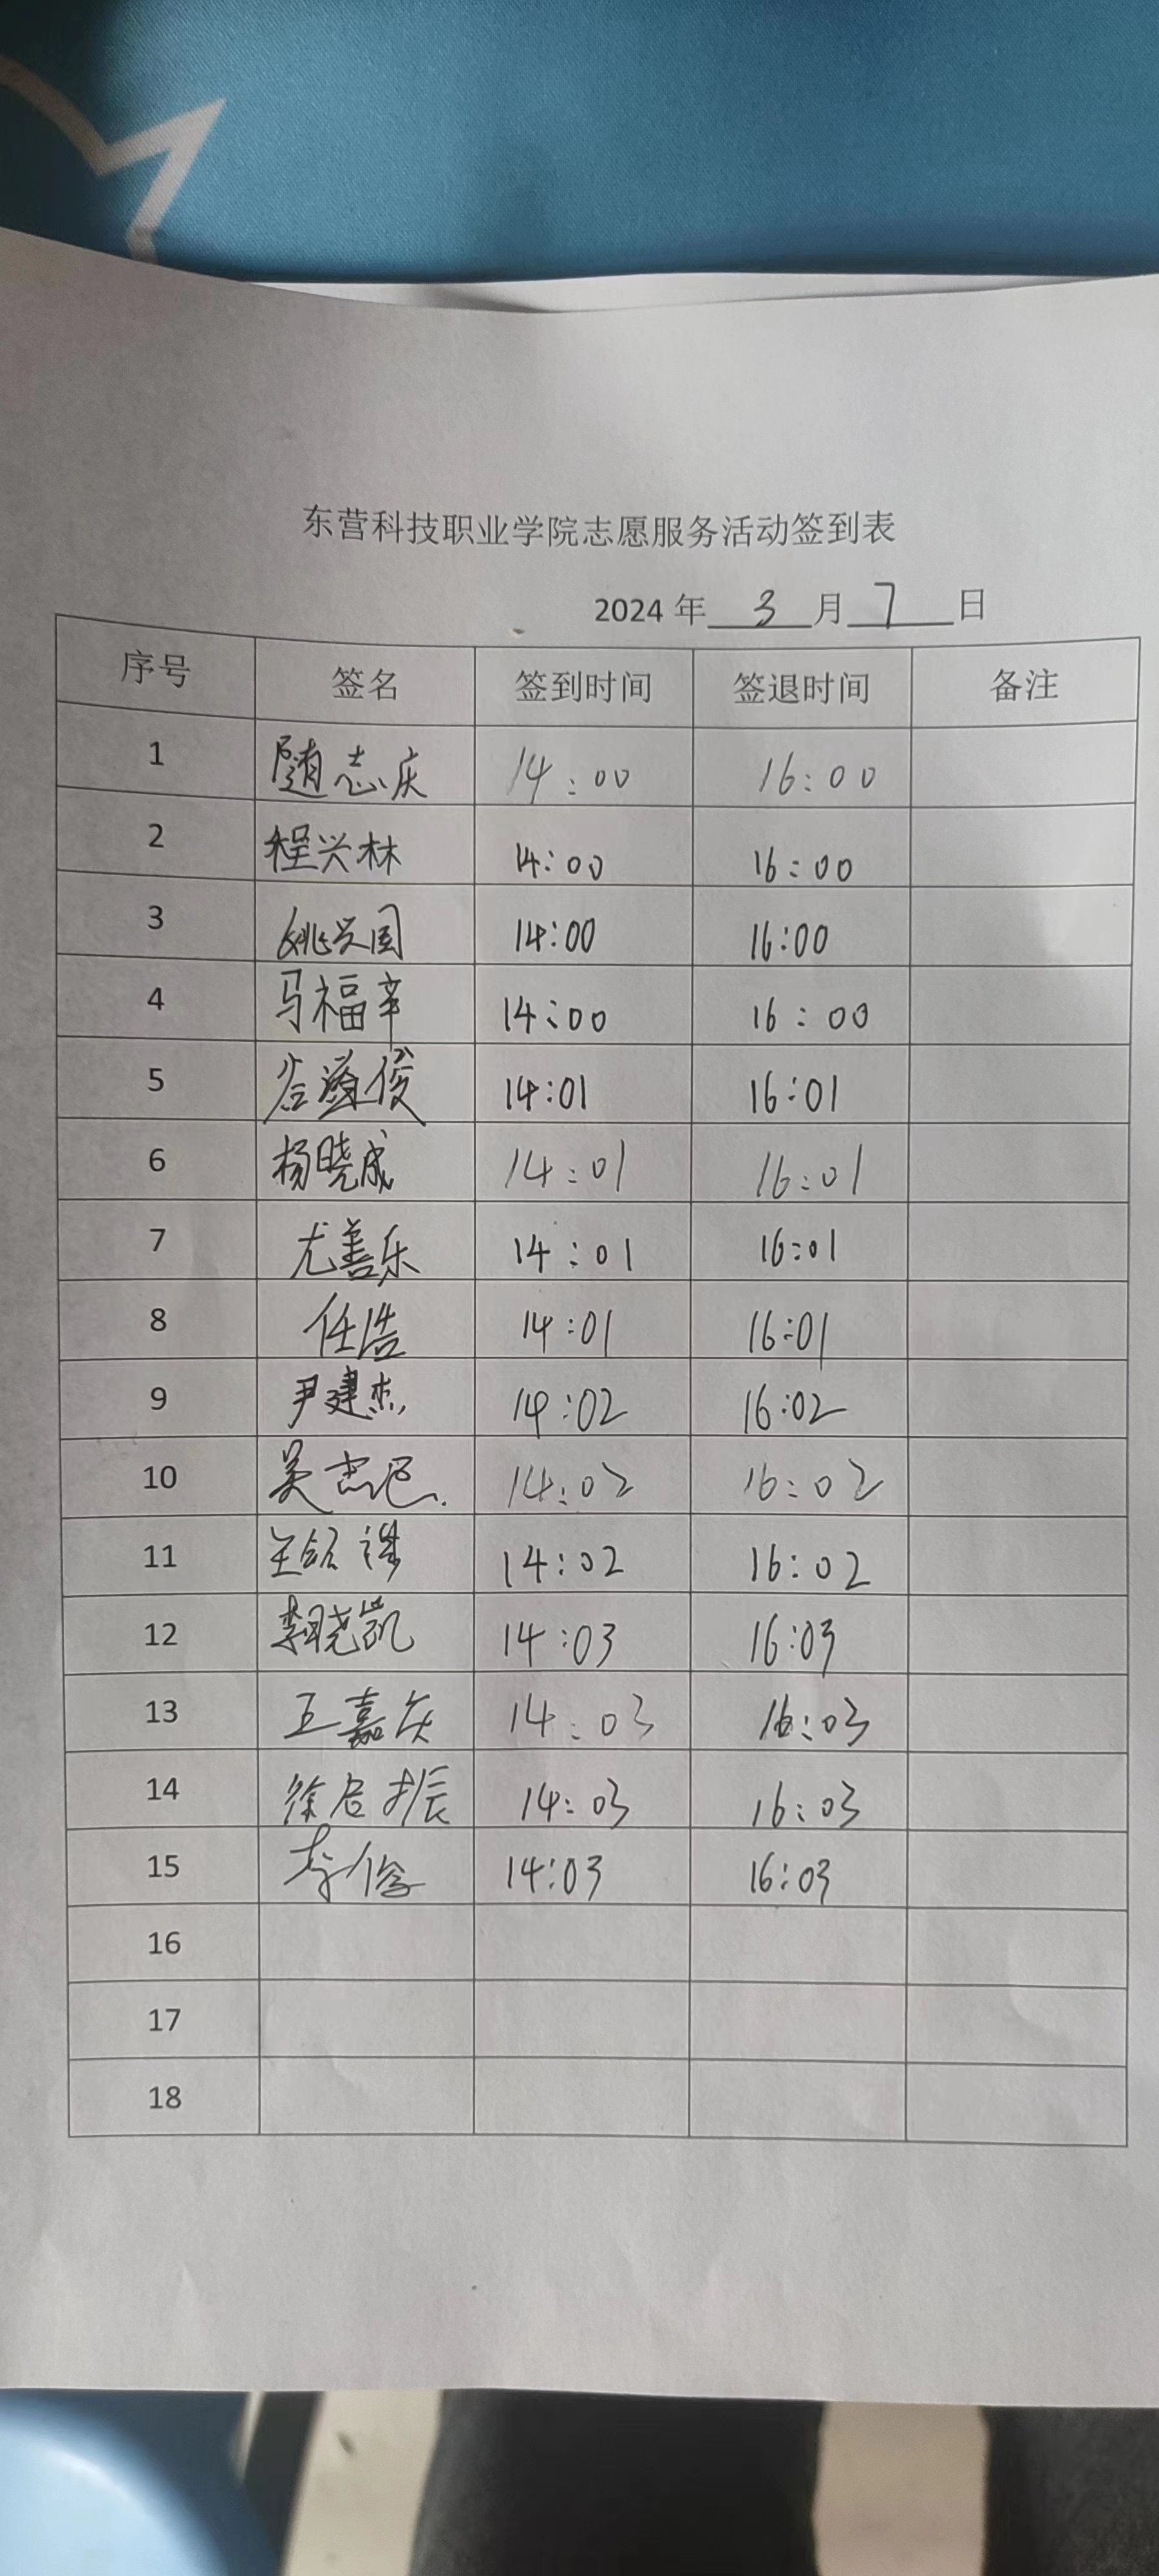 东营科技职业学院志愿服务活动签到表
2024 年 3 月 7 日
序号 签名 签到时间 签退时间 备注
1 随志庆 14:00 16:00
2 程兴林 14:00 16:00
3 姚兴国 14:00 16:00
4 马福辛 14:00 16:00
5 谷 俊 14:01 16:01
6 杨晓成 14:01 16:01
7 尤善乐 14:01 16:01
8 任浩 14:01 16:01
9 尹建杰 14:02 16:02
10 吴 14:02 16:02
11 14:02 16:02
12 晓凯 14:03 16:03
13 王嘉庆 14:03 16:03
14 徐启振 14:03 16:03
15 李俊 14:03 16:03
16
17
18